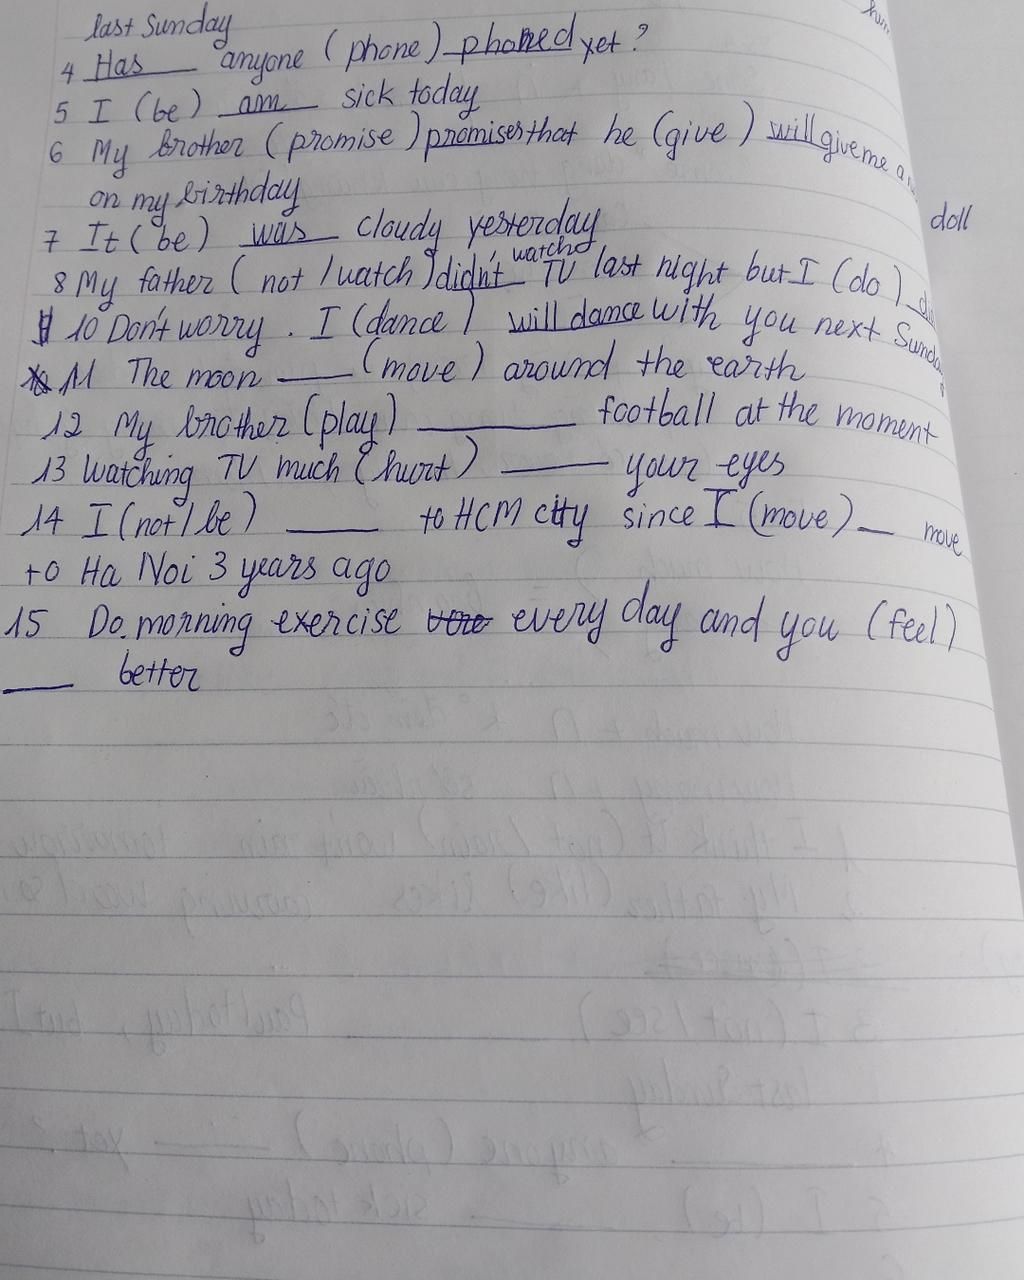 last Sunday
4 Has anyone (phone) phoned yet?
5 I (be) am sick today
6 My brother (promise) promises that he (give) will give me a
doll
on my birthday
7 It (be) was cloudy yesterday
8 My father (not / watch) didn't watch TV last night but I (do)
10 Don't worry. I (dance) will dance with you next Sunday
11 The moon ____ (move) around the earth
12 My brother (play) ____ football at the moment
13 Watching TV much (hurt) ____ your eyes
14 I (not / be) ____ to HCM city since I (move) __ move
to Ha Noi 3 years ago
15 Do morning exercise every day and you (feel)
____ better